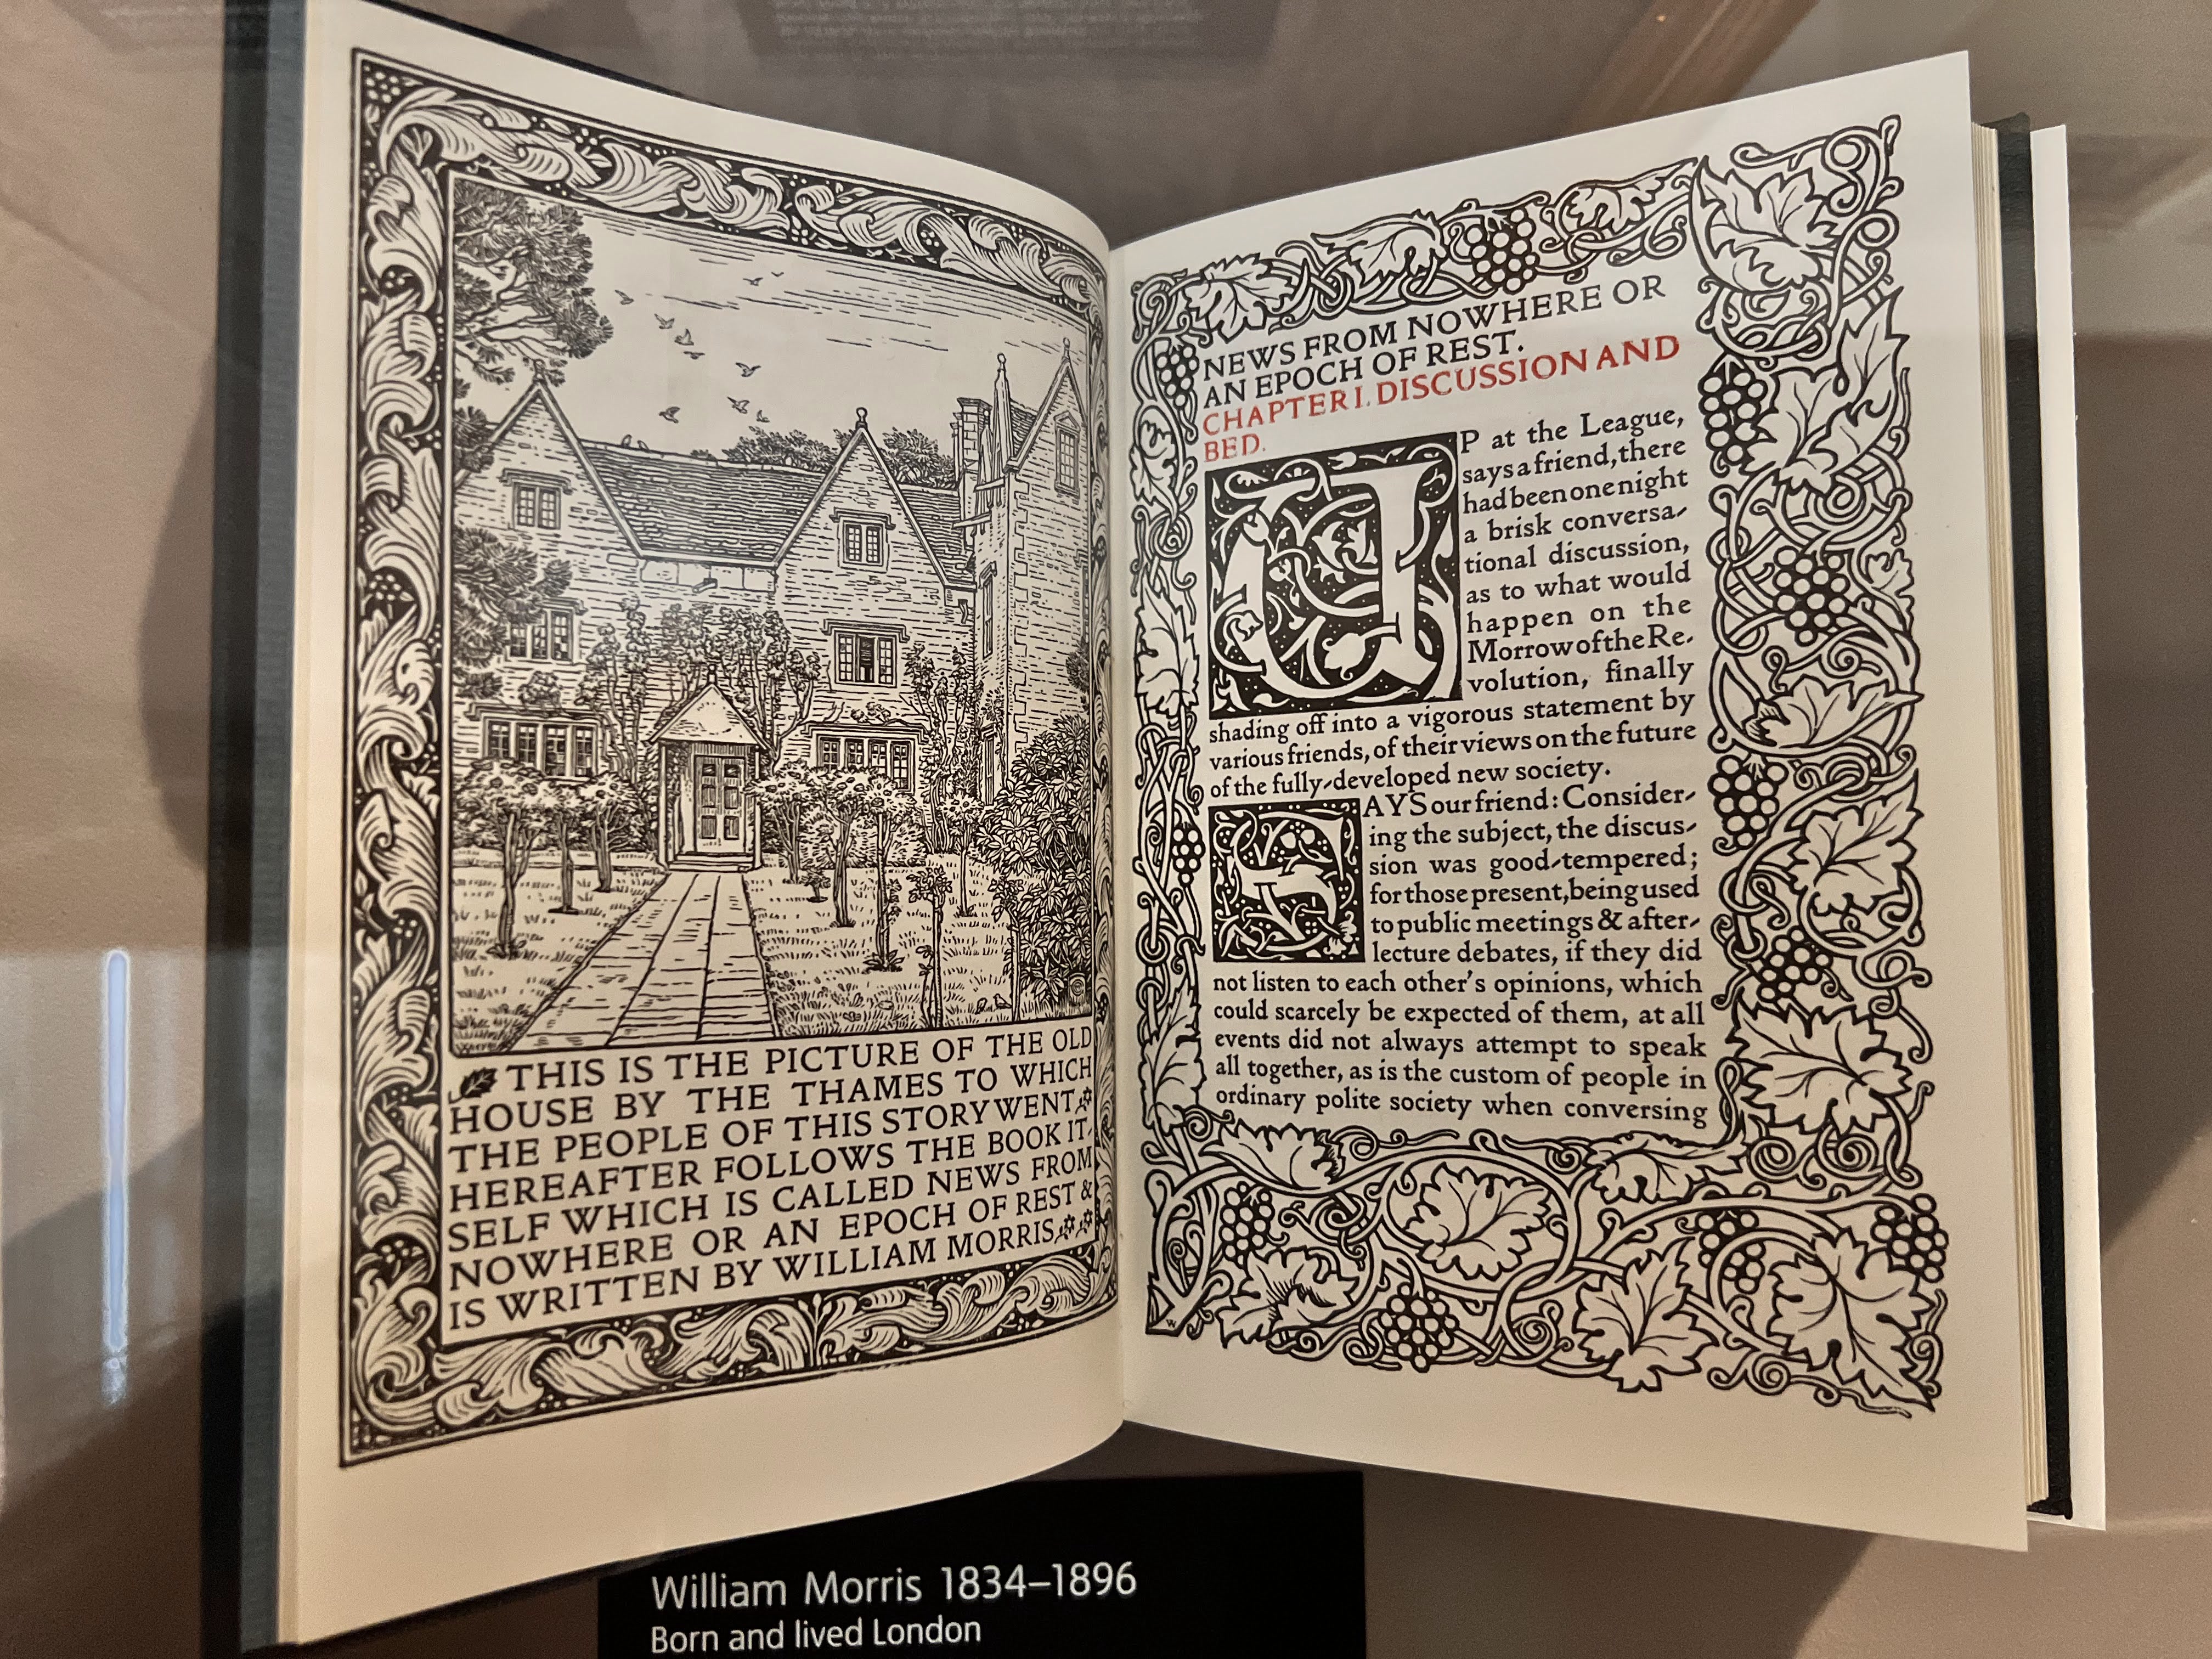 THIS IS THE PICTURE OF THE OLD
HOUSE BY THE THAMES TO WHICH
THE PEOPLE OF THIS STORY WENT
HEREAFTER FOLLOWS THE BOOK IT-
SELF WHICH IS CALLED NEWS FROM
NOWHERE OR AN EPOCH OF REST &
IS WRITTEN BY WILLIAM MORRIS
NEWS FROM NOWHERE OR
AN EPOCH OF REST.
CHAPTER I. DISCUSSION AND
BED.
UP at the League,
says a friend, there
had been one night
a brisk conversa-
tional discussion,
as to what would
happen on the
Morrow of the Re-
volution, finally
shading off into a vigorous statement by
various friends, of their views on the future
of the fully-developed new society.
SAYS our friend: Consider-
ing the subject, the discus-
sion was good-tempered;
for those present, being used
to public meetings & after-
lecture debates, if they did
not listen to each other's opinions, which
could scarcely be expected of them, at all
events did not always attempt to speak
all together, as is the custom of people in
ordinary polite society when conversing
William Morris 1834–1896
Born and lived London